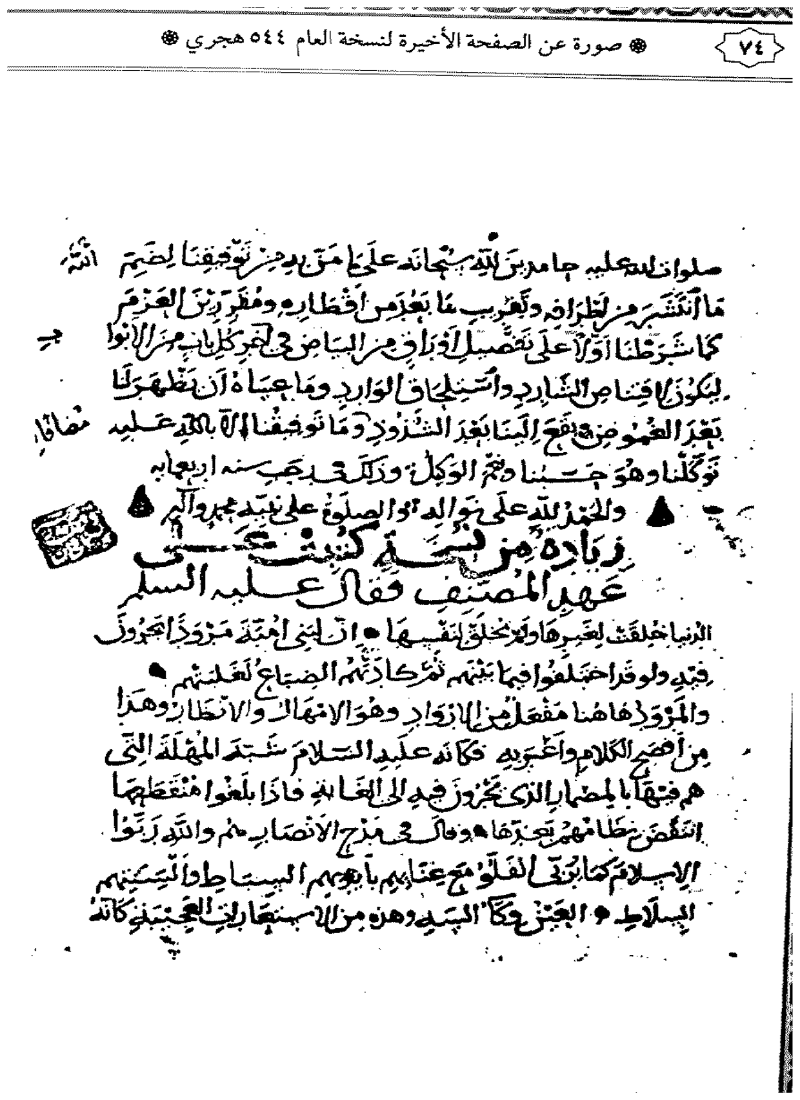 ٧٤
صورة عن الصفحة الأخيرة لنسخة العام ٥٤٤ هجري
صلوات الله عليه حامدين لله سبحانه على ما من به من توفيقنا لضم
ما انتشر من اطرافه وتقريب ما بعد من اقطاره ومقررين العزم
كما شرطنا اولا على تفضيل اوراق من البياض في اخر كل باب من الابوا
ب
ليكون لاقتناص الشارد واستلحاق الوارد وما عساه ان يظهر لنا
بعد الغموض ويقع الينا بعد الشذوذ وما توفيقنا الا بالله عليه
توكلنا وهو حسبنا ونعم الوكيل وذلك في رجب سنه اربعمايه
والحمد لله على نواله والصلوة على نبيه محمد وآله
زيادة من نسخة كتبت على
عهد المصنف وقال عليه السلم
الدنيا خلقت لغيرها ولم تخلق لنفسها ان لبنى امية مرودا يجرون
فيه ولو قد اختلفوا فيما بينهم ثم كادتهم الضباع لغلبتهم
والمرود هاهنا مفعل من الارواد وهو الامهال والانظار وهذا
من افصح الكلام واغربه فكانه عليه السلام شبه المهلة التى
هم فيها بالمضمار الذى يجرون فيه الى الغاية فاذا بلغوا منقطعها
انتقض نظامهم بعدها وقال في مدح الانصار هم والله ربوا
الاسلام كما يربى الفلو مع غنايهم بايديهم السباط والسنتهم
السلاط العين وكاء السه وهذه من الاستعارات العجيبة كانه